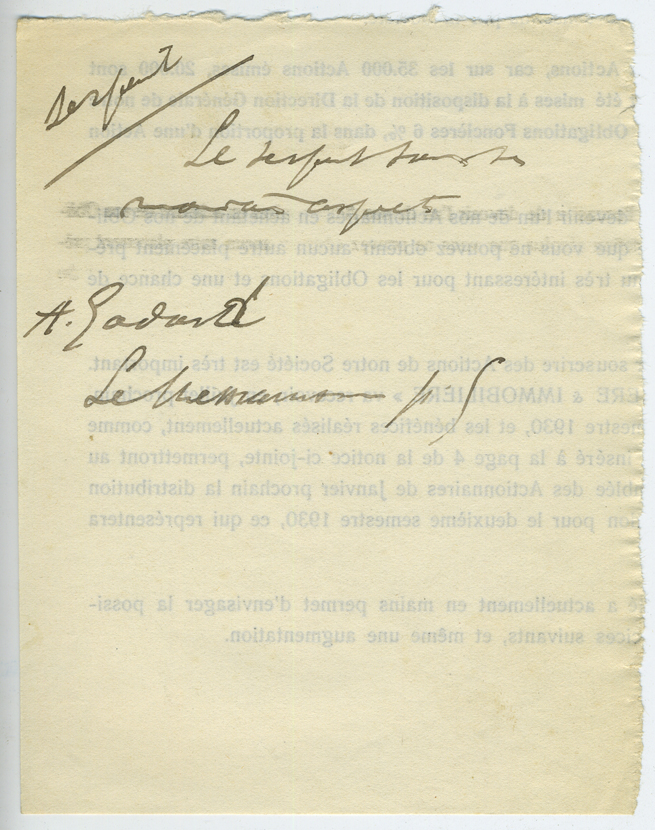 Serpent
Actions, car sur les 35.000 Actions émises, sont
été mises à la disposition de la Direction Générale de
Obligations Foncières 6 %, dans la proportion d'une Action
Le serpent sous ses
mauvais aspects
que vous ne pouvez obtenir aucun autre placement
très intéressant pour les Obligations et une chance de
A. Godard
souscrire des Actions de notre Société est très important.
& IMMOBILIÈRE »
Le Messianisme p. 5
1930, et les bénéfices réalisés actuellement, comme
inséré à la page 4 de la notice ci-jointe, permettront au
des Actionnaires de Janvier prochain la distribution
pour le deuxième semestre 1930, ce qui représentera
a actuellement en mains permet d'envisager la possi-
suivants, et même une augmentation.